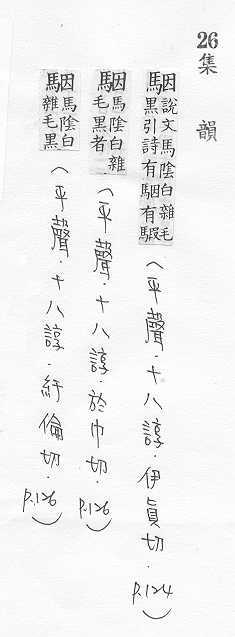 26
集韻
駰說文馬陰白雜毛黑引詩有駰有騢(平聲.十八諄.伊真切.P.124)
駰馬陰白雜毛黑者(平聲.十八諄.於巾切.P.126)
駰馬陰白雜毛黑(平聲.十八諄.紆倫切.P.126)